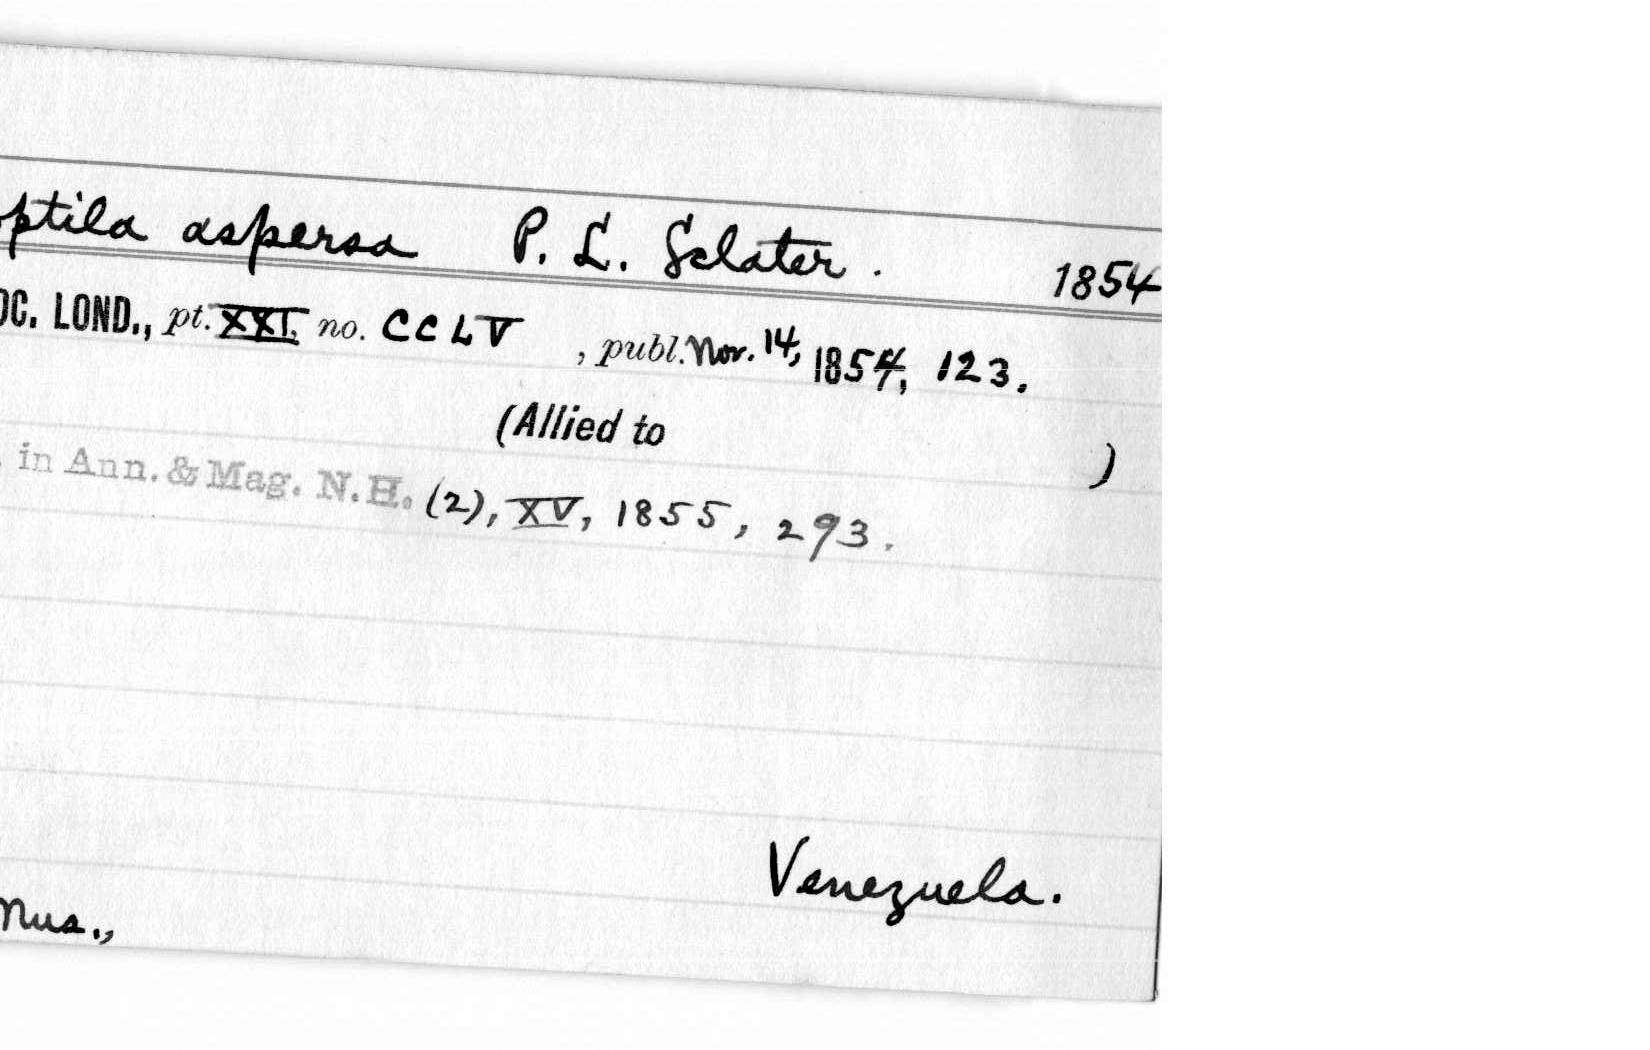 optila aspersa P. L. Sclater. 1854
OC. LOND., pt. XXI, no. CCLV, publ. Nov. 14, 1854, 123.
(Allied to )
, in Ann. & Mag. N.H. (2), XV, 1855, 293.
Venezuela.
Mus.,